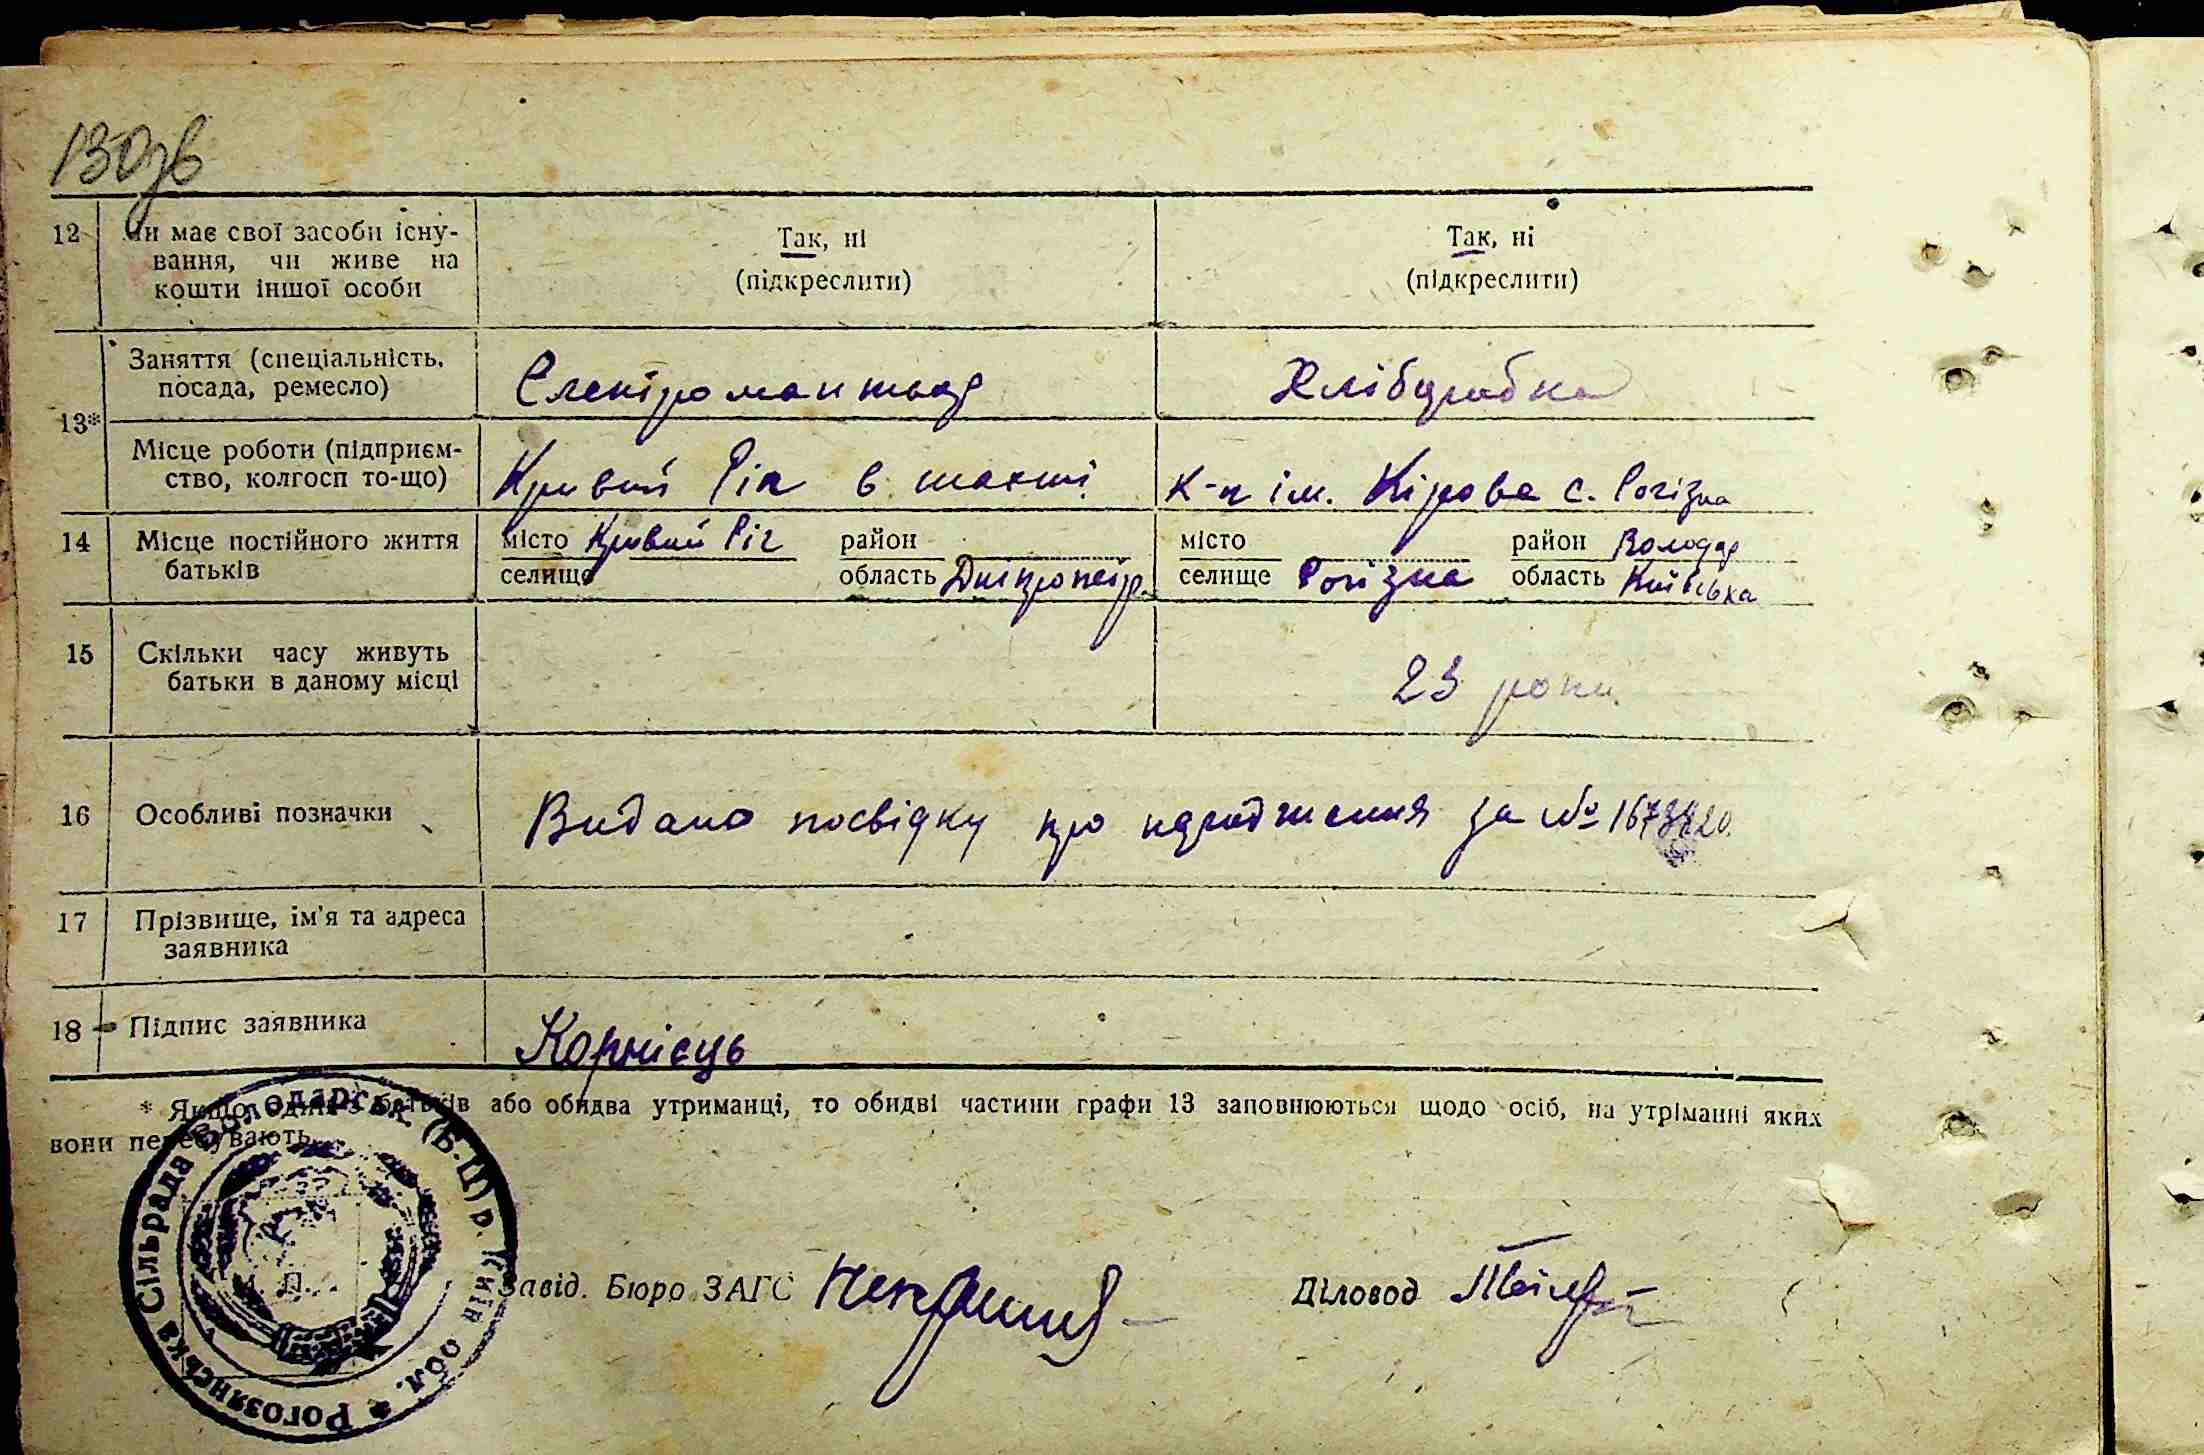 130зв
12 Чи має свої засоби існу-
вання, чи живе на
кошти іншої особи
Так, ні
(підкреслити)
Так, ні
(підкреслити)
13*
Заняття (спеціальність,
посада, ремесло)
Електромантьор
Хлібцробка
Місце роботи (підприєм-
ство, колгосп то-що)
Кривий Рік в шахті
к-п ім. Кірова с. Рогізна
14 Місце постійного життя
батьків
місто Кривий Ріг район
селище область Дніпропетр.
місто район Володар
селище Рогізна область Київська
15 Скільки часу живуть
батьки в даному місці
23 роки
16 Особливі позначки
Видано посвідку про народження за №
17 Прізвище, ім'я та адреса
заявника
18 Підпис заявника
Корнієць
* Якщо один з батьків або обидва утриманці, то обидві частини графи 13 заповнюються щодо осіб, на утріманні яких
вони перебувають.
Рогозянська Сільрада Володарськ. (Б-Ц) р. Київ обл.
Завід. Бюро ЗАГС
Діловод